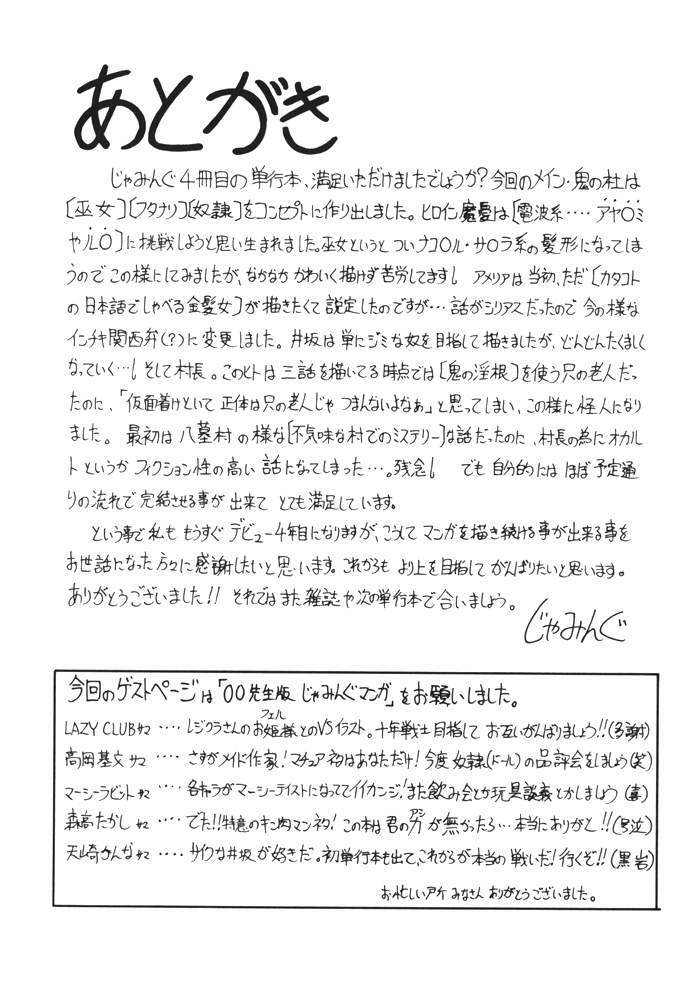 あとがき
じゃみんぐ4冊目の単行本、満足いただけましたでしょうか?今回のメイン・鬼の杜は
[巫女][フタナリ][奴隷]をコンセプトに作り出しました。ヒロイン魔憂は[電波系‥‥アヤ○ミ
やル○]に挑戦しようと思い生まれました。巫女というと ついナコ○ル・サ○ラ系の髪形になってしま
うので この様にしてみましたが、なかなか かわいく描けず苦労してます! アメリアは当初、ただ[カタコト
の日本語でしゃべる金髪女]が描きたくて設定したのですが…話がシリアスだったので 今の様な
インチキ関西弁(?)に変更しました。井坂は単にジミな奴を目指して描きましたが、どんどんたくましく
なっていく…!そして村長。このヒトは三話を描いてる時点では[鬼の淫根]を使う只の老人だっ
たのに、「仮面着けといて 正体は只の老人じゃ つまんないよなぁ」と思ってしまい、この様に怪人になり
ました。最初は八墓村の様な[不気味な村でのミステリー]な話だったのに、村長の為にオカル
トというか フィクション性の高い話になってしまった…。残念! でも自分的には ほぼ予定通
りの流れで完結させる事が出来て とても満足しています。
という事で私も もうすぐデビュー4年目になりますが、こうして マンガを描き続ける事が出来る事を
お世話になった方々に感謝したいと思います。これからも より上を目指して がんばりたいと思います。
ありがとうございました!! それではまた雑誌や次の単行本で合いましょう。
じゃみんぐ
今回のゲストページは「○○先生版 じゃみんぐマンガ」をお願いしました。
LAZY CLUBサマ‥‥レジクラさんのお姫様とのVSイラスト。十年戦士目指して お互いがんばりましょう!!(多謝)
フェル
高岡基文サマ‥‥さすがメイド作家!マチュアネタはあなただけ!今度 奴隷(ドール)の品評会をしましょう(笑)
マーシーラビットサマ‥‥各キャラがマーシーテイストになっててイイカンジ!また飲み会とか玩具談義とかしましょう(喜)
森高たかしサマ‥‥でた!!得意のキン肉マンネタ!この本は君の力が無かったら…本当にありがと!!(号泣)
天崎かんなサマ‥‥サイクな井坂が好きだ。初単行本も出て、これからが本当の戦いだ!行くぞ!!(黒岩)
お忙しい中 みなさん ありがとうございました。